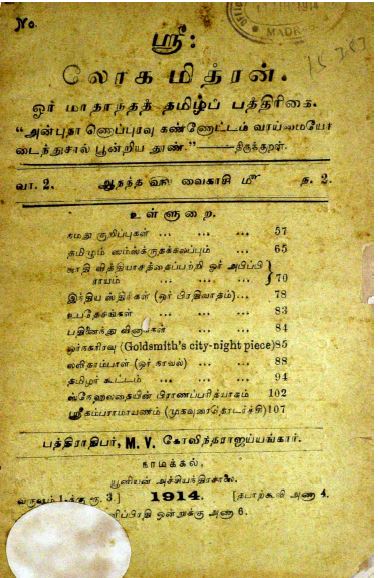 No.
1914
MADR
ஸ்ரீ:
லோகமித்ரன்.
ஓர் மாதாந்தத் தமிழ்ப் பத்திரிகை.
“அன்புநா ணொப்புரவு கண்ணோட்டம் வாய்மையோ
டைந்துசால் பூன்றிய தூண்.”——திருக்குறள்.
வா. 2. ஆநந்த வரு வைகாசி மீ ந. 2.
உள்ளுறை.
நமது குறிப்புகள் ... ... ... 57
தமிழும் ஸம்ஸ்க்ருதக்கலப்பும் ... ... 65
ஜாதி வித்தியாசத்தைப்பற்றி ஓர் அபிப்பி
ராயம் ... ... ... 70
இந்திய ஸ்திரீகள் (ஓர் பிரதிவாதம்)... ... 78
உபதேசங்கள் ... ... ... 83
பதினைந்து வினாக்கள் ... ... 84
ஓர்நகரிரவு (Goldsmith's city-night piece)85
லலிதாம்பாள் (ஓர் நாவல்) ... ... 88
தமிழர் கூட்டம் ... ... ... 94
ஸ்நேஹலதையின் பிராணப்பரித்யாகம் 102
ஸ்ரீகம்பராமாயணம் (முகவுரைதொடர்ச்சி)107
பத்திராதிபர், M. V. கோவிந்தராஜய்யங்கார்.
நாமக்கல்,
யூனியன் அச்சியந்திரசாலை.
வருஷம் 1-க்கு ரூ. 3.] 1914. [தபாற்கூலி அணா 4.
னிப்பிரதி ஒன்றுக்கு அணா 6.